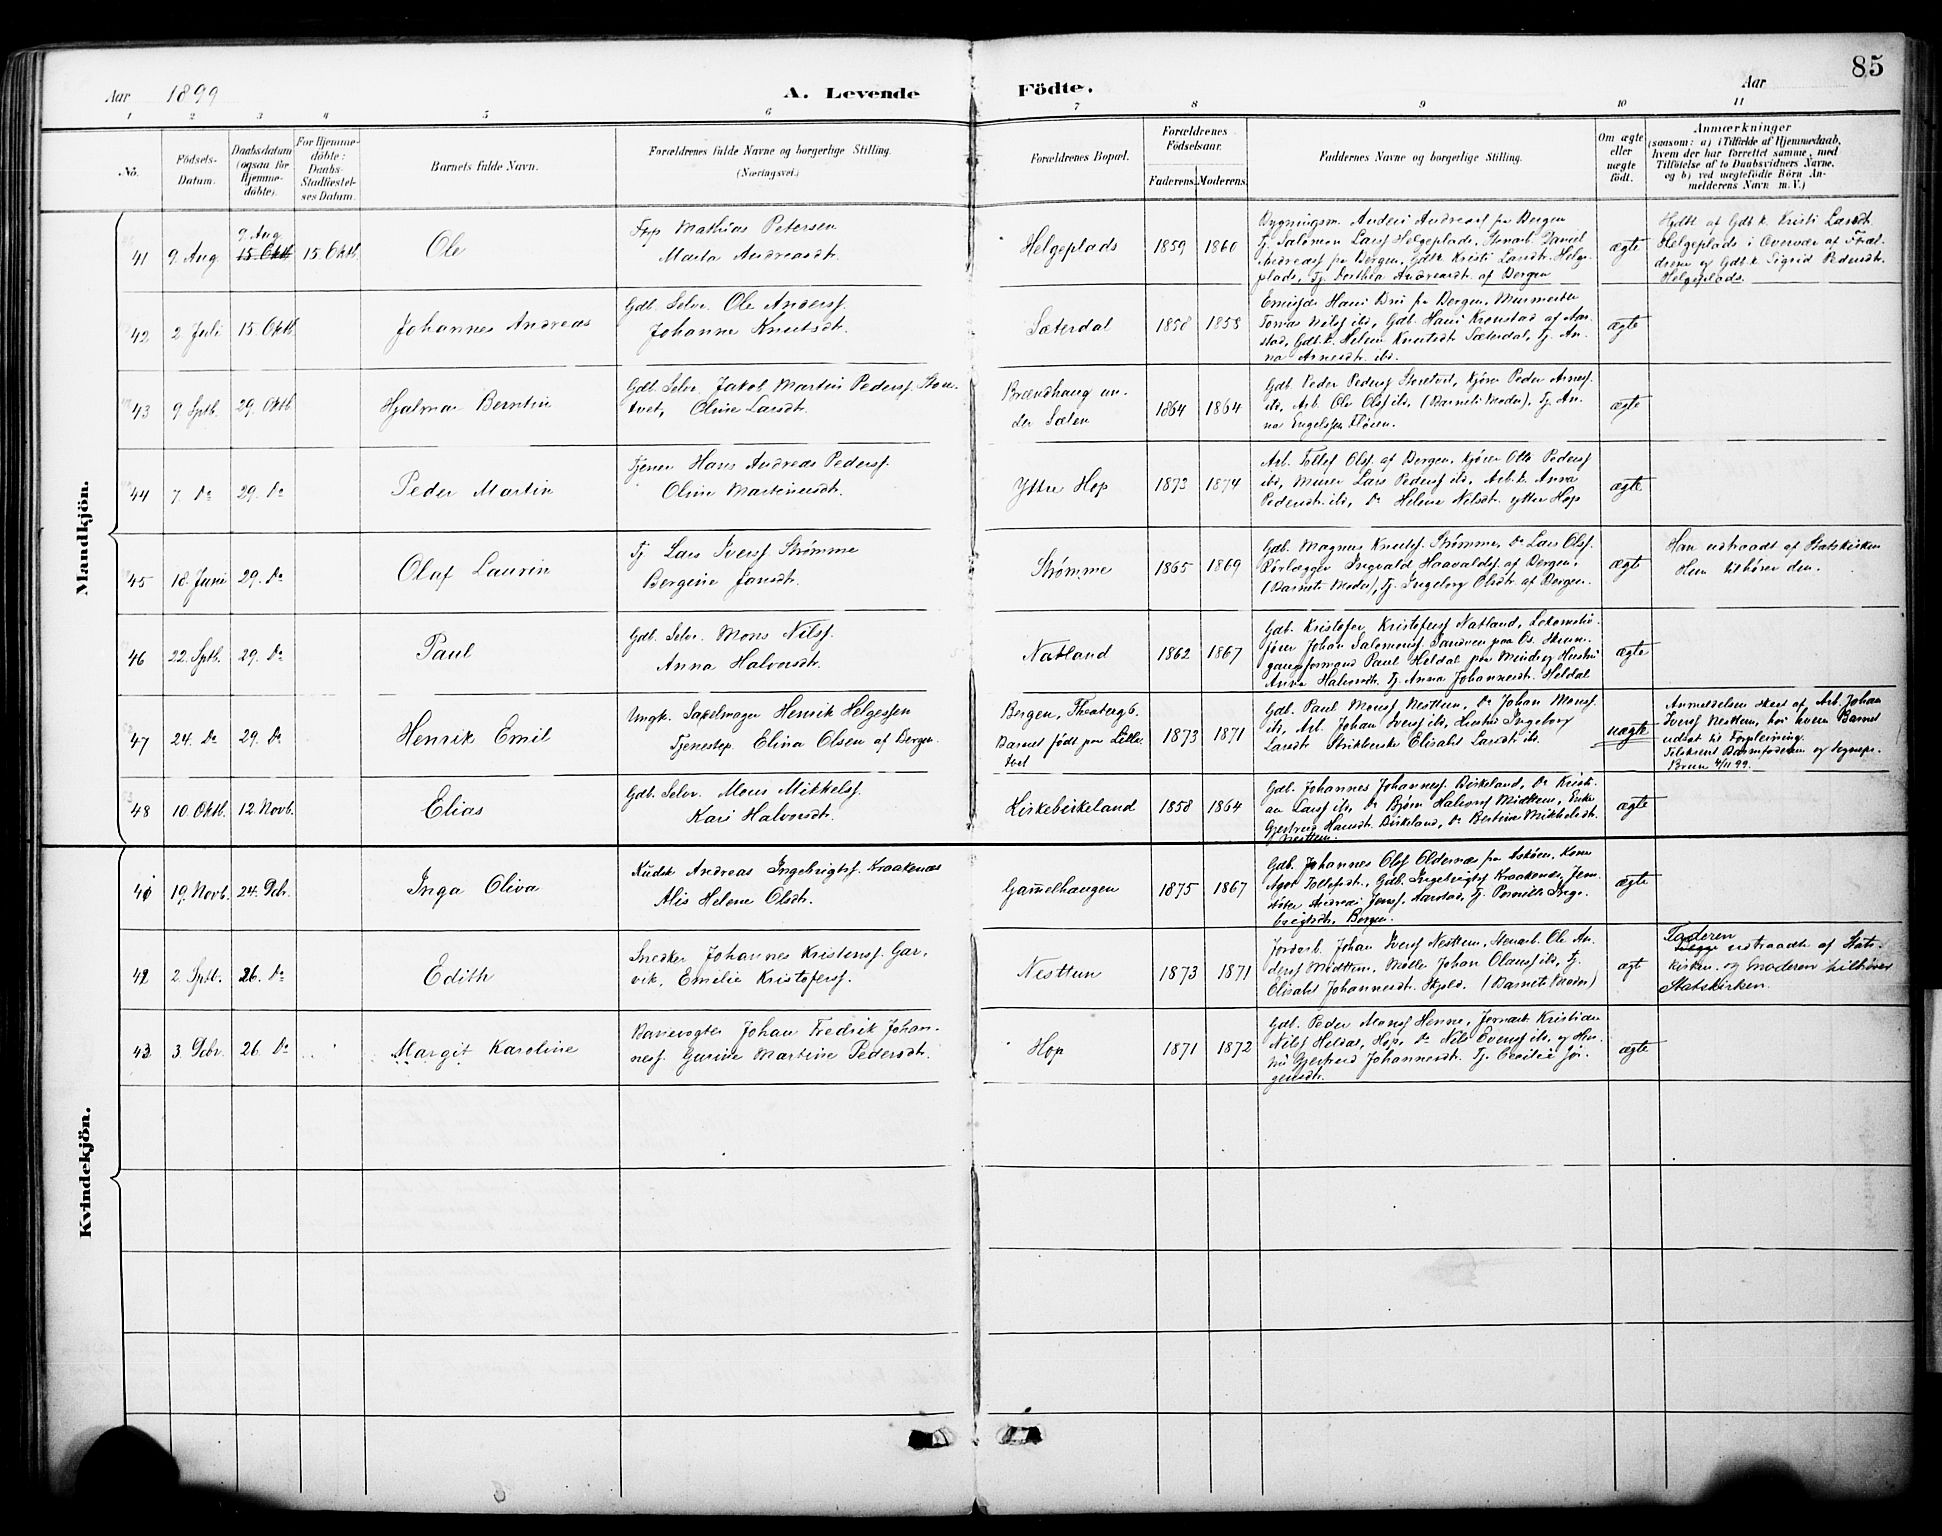 85
Aar 1899 A. Levende Födte. Aar
1 2 3 4 5 6 7 8 9 10 11
No.
Födsels-
Datum.
Daabsdatum
(ogsaa for
Hjemme-
döbte).
For Hjemme-
döbte:
Daabs-
Stadfæstel-
ses Datum.
Barnets fulde Navn.
Forældrenes fulde Navne og borgerlige Stilling.
(Næringsvei.)
Forældrenes Bopæl.
Forældrenes
Födselsaar.
Faderens. Moderens.
Faddernes Navne og borgerlige Stilling.
Om ægte
eller
uægte
födt.
Anmærkninger
(saasom: a) i Tilfælde af Hjemmedaab,
hvem der har forrettet samme, med
Tilföielse af to Daabsvidners Navne,
og b) ved uægtefödte Börn An-
melderens Navn m. V.)
Mandkjön.
41 9 Aug. 9 Aug. 15 Oktb. 15 Oktb. Ole
Mathias Petersen
Marta Andreasdt.
Helgeplads 1859 1860
Bygningsm. Anders Andreasf fra Bergen
Tj. Salomon Larsf Helgeplads, Stenarb. Daniel
Andreasf fra Bergen, Gdtk. Kristi Larsdt. Helge-
plads, Tj. Dorthea Andreasdt. af Bergen
ægte
Hjdt. af Gdtk. Kristi Larsdt
Helgeplads i Overvær af Foræl-
drene og Gdtk. Sigrid Pedersdt.
Helgeplads.
42 2 Juli 15 Oktb Johannes Andreas
Gdb. Selv. Ole Andersf.
Johanne Knutsdt.
Sæterdal 1858 1858
Hans Bru fra Bergen, Murmester
Tomas Nilsf ibd, Gdb. Hans Kronstad af Aar-
stad, Gdtk. Helene Knutsdt Sæterdal, Tj. An-
na Arnesdt. ibd.
ægte
43 9 Sptb. 29. Oktb Hjalmar Berntin
Gdb. Selv. Jakob Martin Pedersf. Store-
tvet, Oline Larsdt.
Brændhaug un-
der Sælen
1864 1864
Gdb. Peder Pedersf Storetvet, Kjører Peder Arnesf.
ib, Arb. Ole Olsf ib, (Barnets Moder), Tj. An-
na Engelsen Fløien.
ægte
44 7. Do 29. Do Peder Martin
Tjener Hans Andreas Pedersf.
Oline Martinusdt.
Yttre Hop 1873 1874
Arb. Tollef Olsf. af Bergen, Kjører Otto Pedersf
ib, Murer Lars Pedersf ib, Arb.k. Anna
Pedersdt. ib, Do Helene Nilsdt. ytter Hop
ægte
45 18. Juni 29. Do Olaf Laurin
Tj. Lars Iversf Strømme
Bergine Jansdt.
Strømme 1865 1869
Gdb. Magnus Knutsf. Strømme, Do Lars Olsf.
Rørlægger Ingvald Haavaldsf. af Bergen,
(Barnets Moder), Tj. Ingeborg Olsdt. af Bergen.
ægte
Han udtraadt af Statskirken
Hun tilhører den.
46 22. Sptb. 29. Do Paul
Gdb. Selv. Mons Nilsf.
Anna Halvorsdt.
Natland 1862 1867
Gdb. Kristofer Kristofersf Natland, Lokomotiv-
fører Johan Salomonsf. Sandven paa Os.
Paul Heldal paa Minde og Hustru
Anna Halvorsdt. Tj. Anna Johannesdt. Heldal
ægte
47 24. Do 29. Do Henrik Emil
Ungk. Sadelmager Henrik Helgessen
Tjenestep. Elina Olsen af Bergen.
Bergen, Theaterg 6.
Barnet født paa Lille-
tvet
1873 1871
Gdb. Paul Monsf Nesttun, Do Johan Monsf.
ib, Arb. Johan Iversf ib, Hustru Ingeborg
Larsdt. Strikkerske Elisabet Larsdt ib.
uægte
Anmeldelsen skeet af Arb. Johan
Iversf Nesttun, hos hvem Barnet
udsat til Forpleining.
Tilskrevet Barnefaderen og Sognepr.
Brun 4/11 99.
48 10. Oktb. 12 Novb. Elias
Gdb. Selv. Mons Mikkelsf.
Kari Halvorsdt.
Kirkebirkeland 1858 1864
Gdb. Johannes Johannesf. Birkeland, Do Kristi-
an Larsf ib, Do Bjørn Halvorsf Midttun, Enke
Gjertrud Hansdt. Birkeland, Do Bertine Mikkelsdt.
Nesttun.
ægte
Kvindekjön.
41 19. Novb. 24. Dcbr. Inga Oliva
Kudsk Andreas Ingebrigtsf. Kraakenæs
Alis Helene Olsdt.
Gamelhaugen 1875 1867
Gdb. Johannes Olsf Oldernæs fra Askøen, Kone
Tollefsdt., Gdb. Ingebrigtsf Kraakenæs,
Andreas Jensf. Aarstad, Tj. Pernille Inge-
brigtsdt. Bergen.
ægte
42 2. Sptb. 26. Do Edith
Snedker Johannes Kristensf. Gar-
vik, Emelie Kristofersf.
Nesttun 1873 1871
Jordarb. Johan Iversf Nesttun, Stenarb. Ole An-
dersf Midttun, Møller Johan Olausf ib, Tj.
Elisabet Johannesdt. Skjold. (Barnets Moder)
ægt
Faderen
udtraadte af Stats-
kirken. og Moderen tilhører
Statskirken.
43 3. Dcbr. 26. Do Margit Karoline
Banevogter Johan Fredrik Johan-
nesf. Gurine Martine Pedersdt.
Hop 1871 1872
Gdb. Peder Monsf Henne, Jernarb Kristian
Nilsf Heldal, Hop, Do Nils Evensf ib, og Hu-
stru Gjertrud Johannesdt. Tj. Cecilie Jør-
gensdt.
ægte